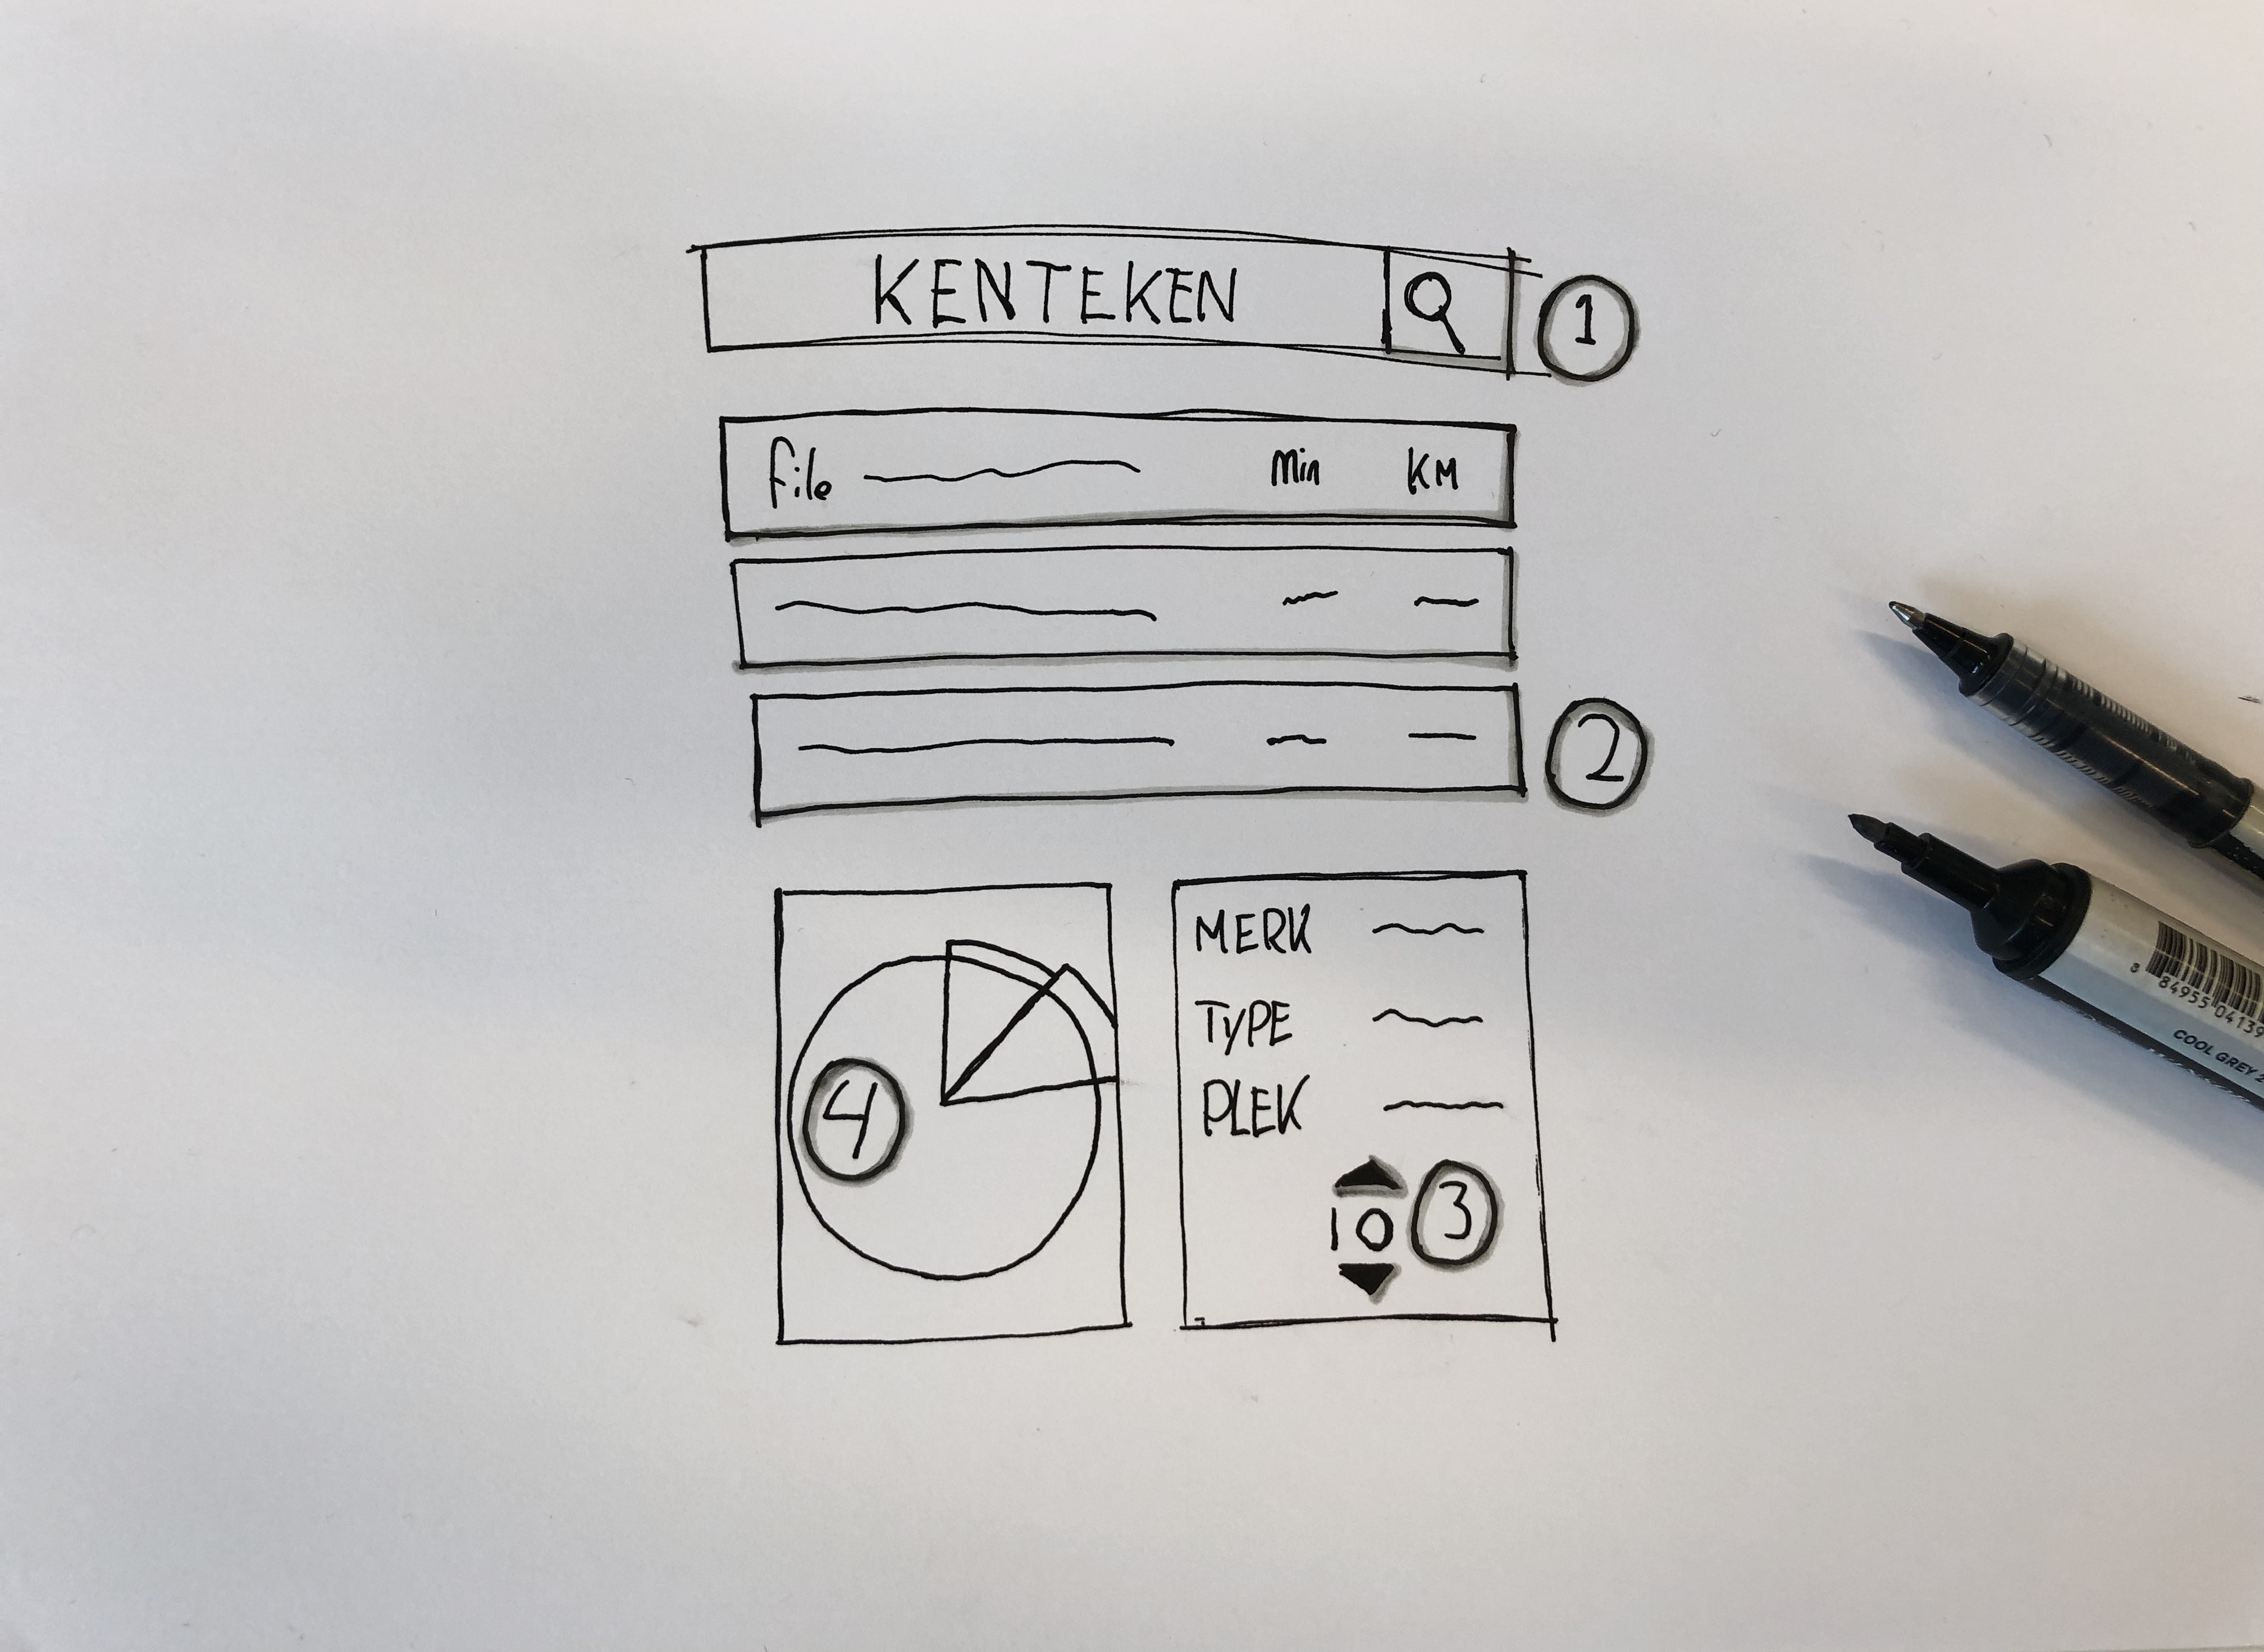 KENTEKEN
1
file Min KM
2
MERK
TYPE
PLEK
10
3
4
8 84955 04139
COOL GREY 2